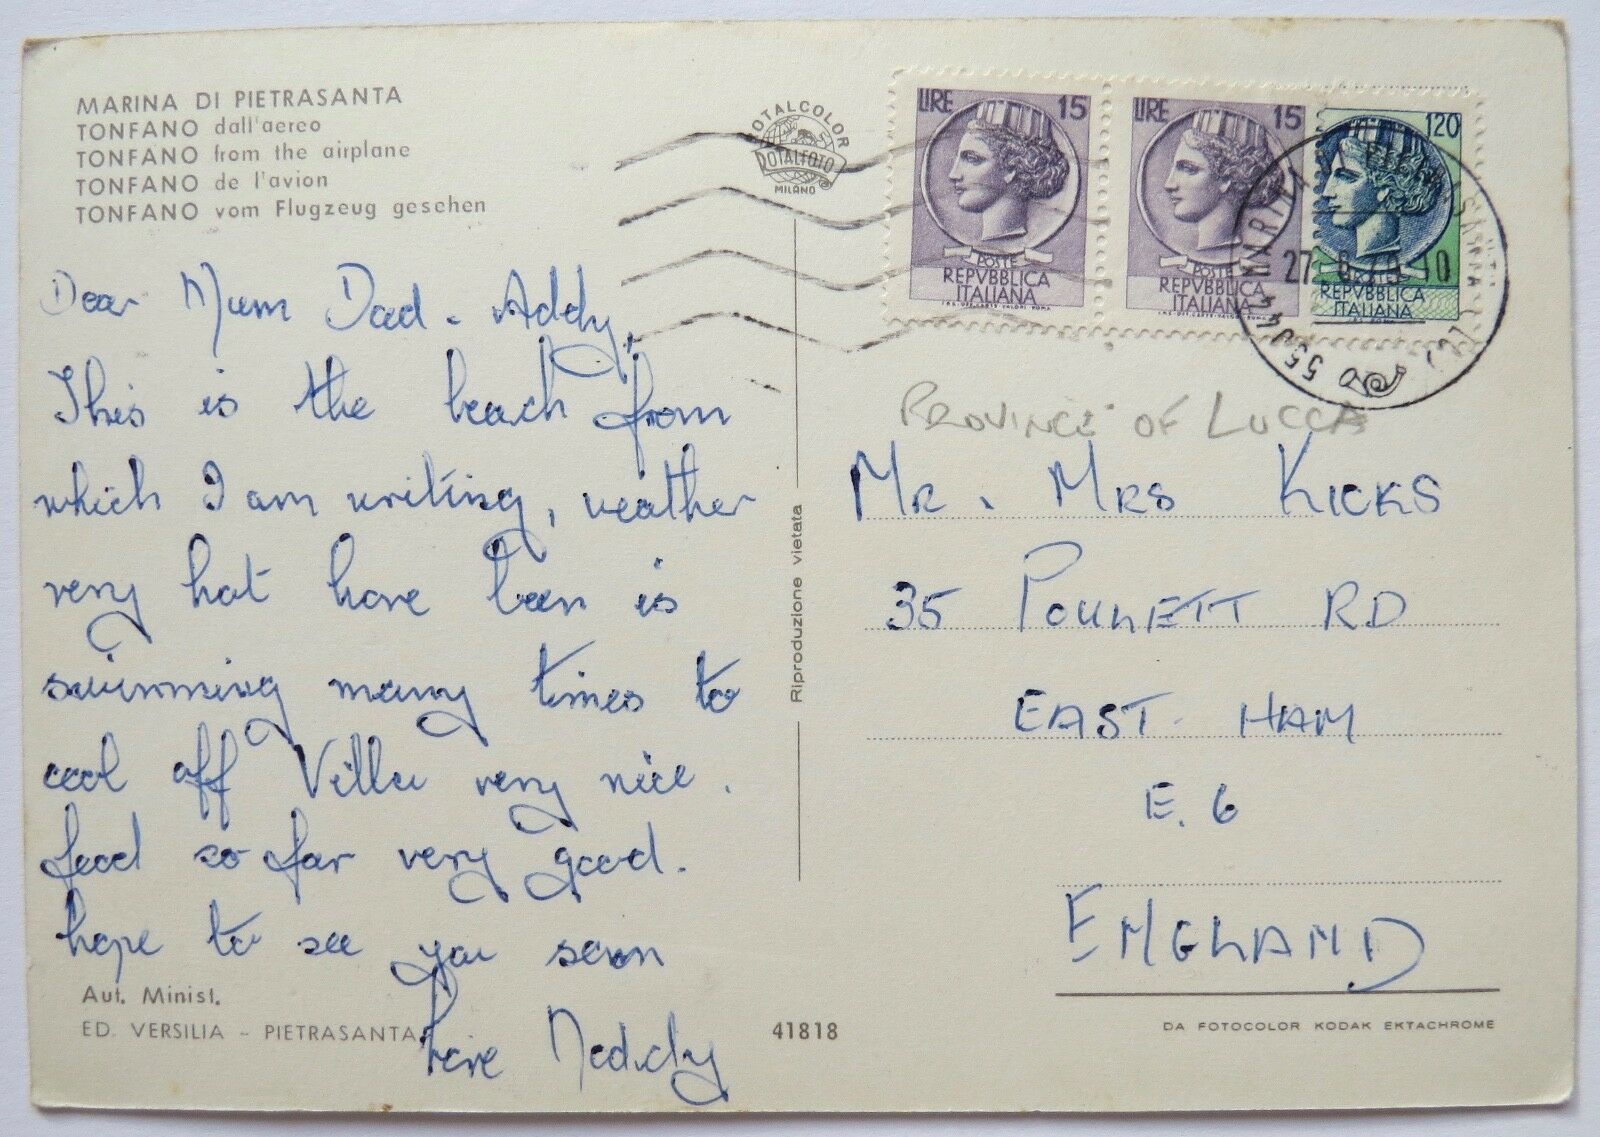 MARINA DI PIETRASANTA
TONFANO dall'aereo
TONFANO from the airplane
TONFANO de l'avion
TONFANO vom Flugzeug gesehen
Dear Mum Dad. Addy,
This is the beach from
which I am writing, weather
very hot have been is
swimming many times to
cool off Villa very nice.
food so far very good.
hope to see you soon
love
Aut. Minist.
ED. VERSILIA - PIETRASANTA
41818
Riproduzione vietata
ROTALCOLOR
ROTALFOTO
MILANO
LIRE 15
POSTE
REPVBBLICA
ITALIANA
LIRE 15
POSTE
REPVBBLICA
ITALIANA
120
POSTE
REPVBBLICA
ITALIANA
55044 MARINA
PROVINCE OF LUCCA
MR. MRS KICKS
35 POULETT RD
EAST HAM
E. 6
ENGLAND
DA FOTOCOLOR KODAK EKTACHROME